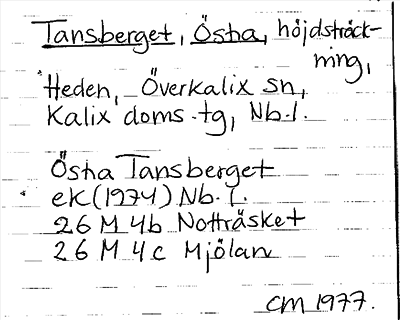 Tansberget, Östra, höjdsträck-
ning,
Heden, Överkalix sn,
Kalix doms.tg, Nb.l.
Östra Tansberget
ek (1974) Nb.l.
26 M 4b Notträsket
26 M 4c Mjölan
CM 1977.